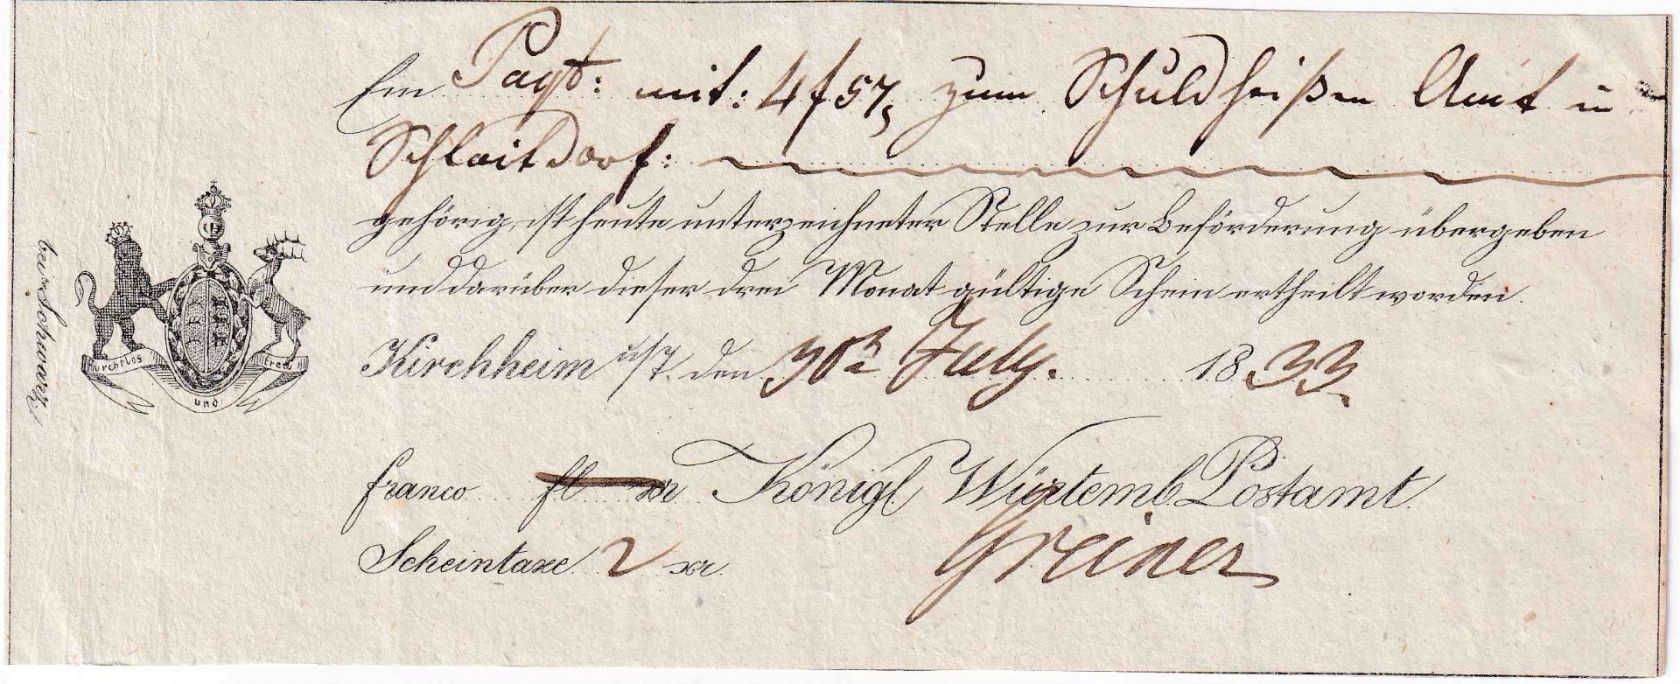 Ein Paqt: mit: 4 f 57, zum Schuldheißen Amt in
Schlaitdorf:
gehörig, ist heute unterzeichneter Stelle zur Beförderung übergeben
und darüber dieser drei Monat gültige Schein ertheilt worden.
Kirchheim u/T. den 30n July. 1833.
franco fl xr Königl Würtemb. Postamt.
Scheintaxe 2 xr. Greiner
Furchtlos und treu
bei Schwarz.